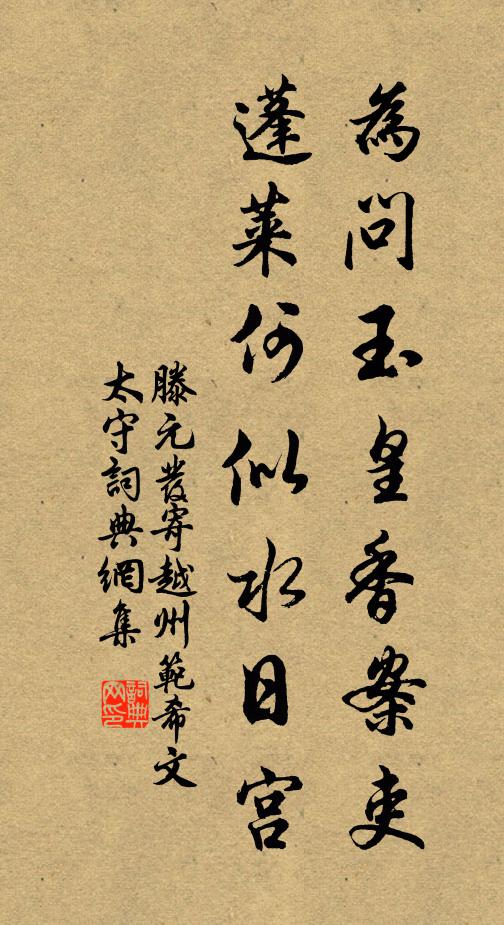 為問玉皇香案吏
蓬萊何似水日宫
滕元發寄越州範希文
太守詞典網集
詞典
网印